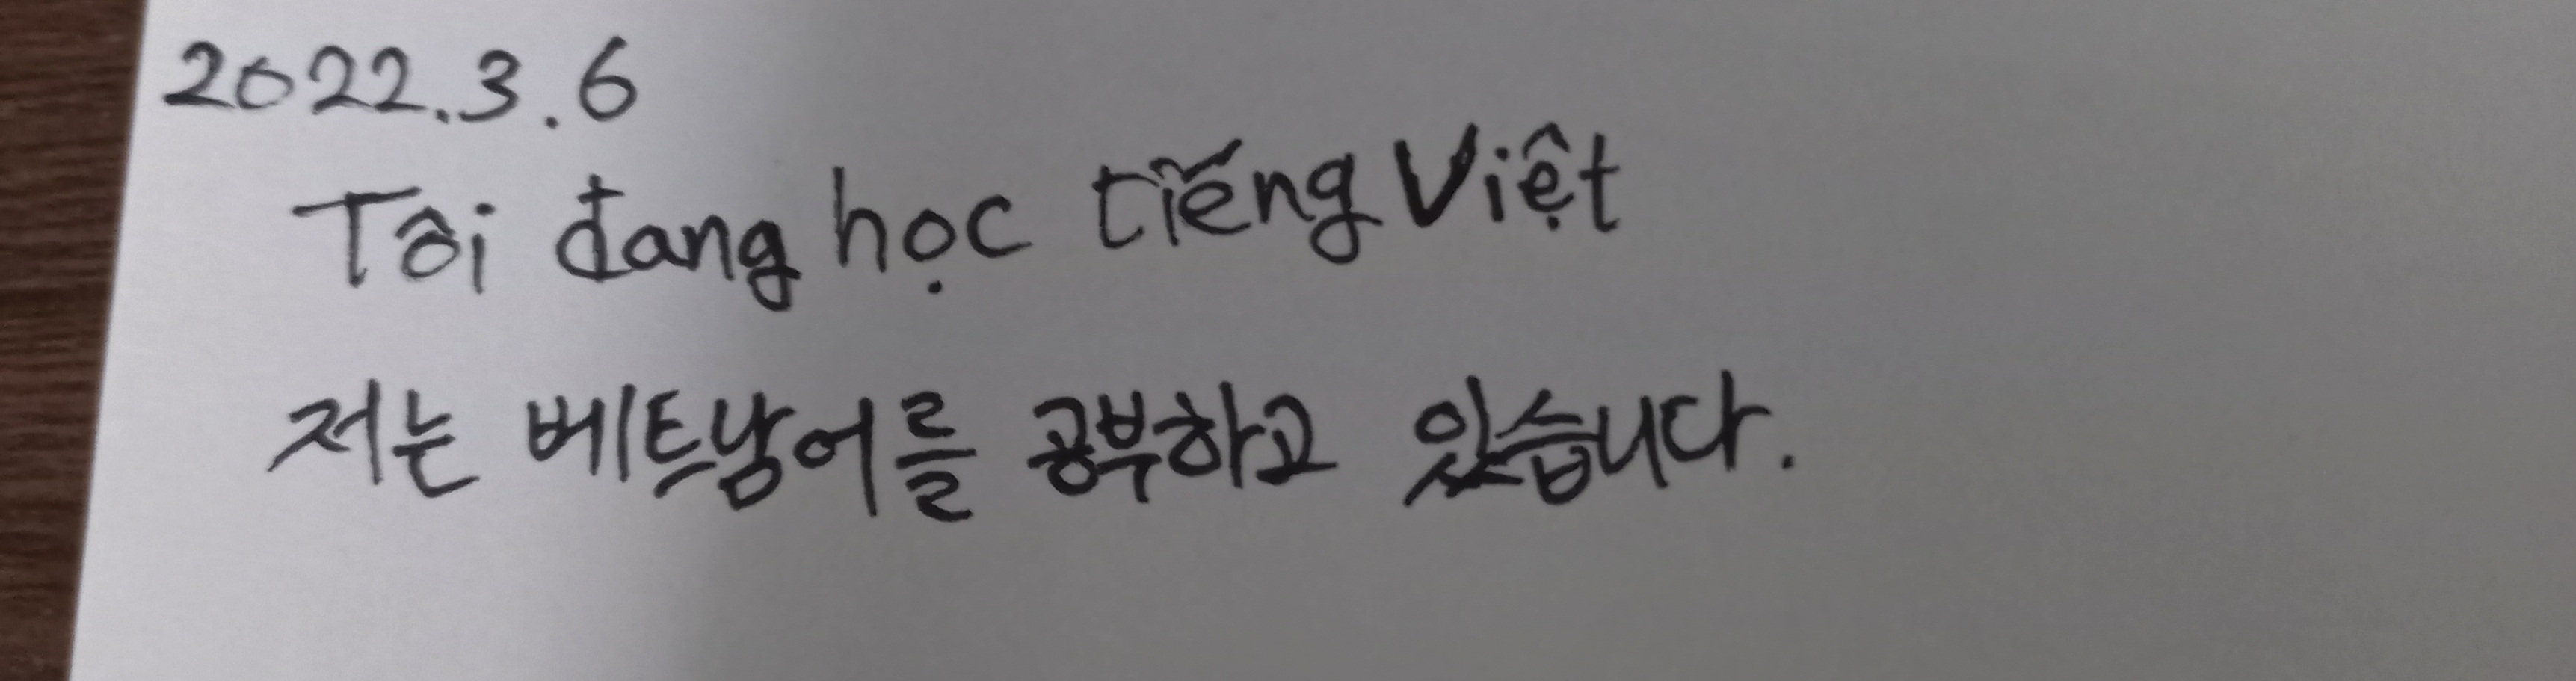 2022.3.6
Tôi đang học tiếng Việt
저는 베트남어를 공부하고 있습니다.